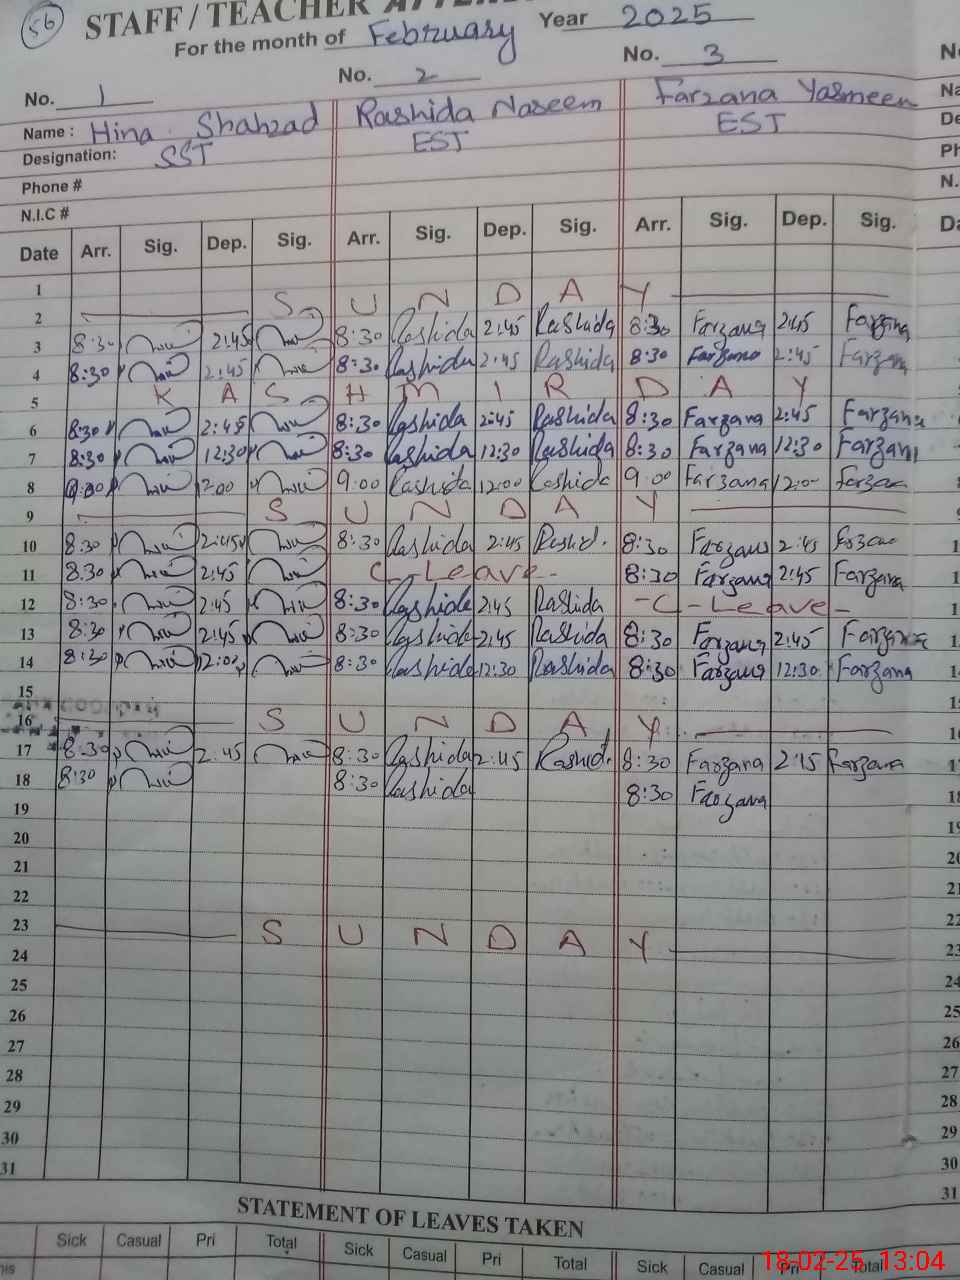 56
STAFF / TEACHER
For the month of February Year 2025
No. 1 No. 2 No. 3
Name : Hina Shahzad Rashida Naseem Farzana Yasmeen
Designation: SST EST EST
Phone #
N.I.C #
Date Arr. Sig. Dep. Sig. Arr. Sig. Dep. Sig. Arr. Sig. Dep. Sig.
1
2 S U N D A Y
3 8:30 2:45 8:30 Rashida 2:45 Rashida 8:30 Farzana 2:45 Farzana
4 8:30 2:45 8:30 Rashida 2:45 Rashida 8:30 Farzana 2:45 Farzana
5 K A S H M I R D A Y
6 8:30 2:45 8:30 Rashida 2:45 Rashida 8:30 Farzana 2:45 Farzana
7 8:30 12:30 8:30 Rashida 12:30 Rashida 8:30 Farzana 12:30 Farzana
8 9:00 12:00 9:00 Rashida 12:00 Rashida 9:00 Farzana 12:00 Farzana
9 S U N D A Y
10 8:30 2:45 8:30 Rashida 2:45 Rashid. 8:30 Farzana 2:45
11 8:30 2:45 C-Leave- 8:30 Farzana 2:45 Farzana
12 8:30 2:45 8:30 Rashida 2:45 Rashida -C-Leave-
13 8:30 2:45 8:30 Rashida 2:45 Rashida 8:30 Farzana 2:45 Farzana
14 8:30 12:00 8:30 Rashida 12:30 Rashida 8:30 Farzana 12:30 Farzana
15
16 S U N D A Y
17 8:30 2:45 8:30 Rashida 2:45 Rashid. 8:30 Farzana 2:15 Farzana
18 8:30 8:30 Rashida 8:30 Farzana
19
20
21
22
23 S U N D A Y
24
25
26
27
28
29
30
31
STATEMENT OF LEAVES TAKEN
Sick Casual Pri Total Sick Casual Pri Total Sick Casual Pri Total
18-02-25 13:04